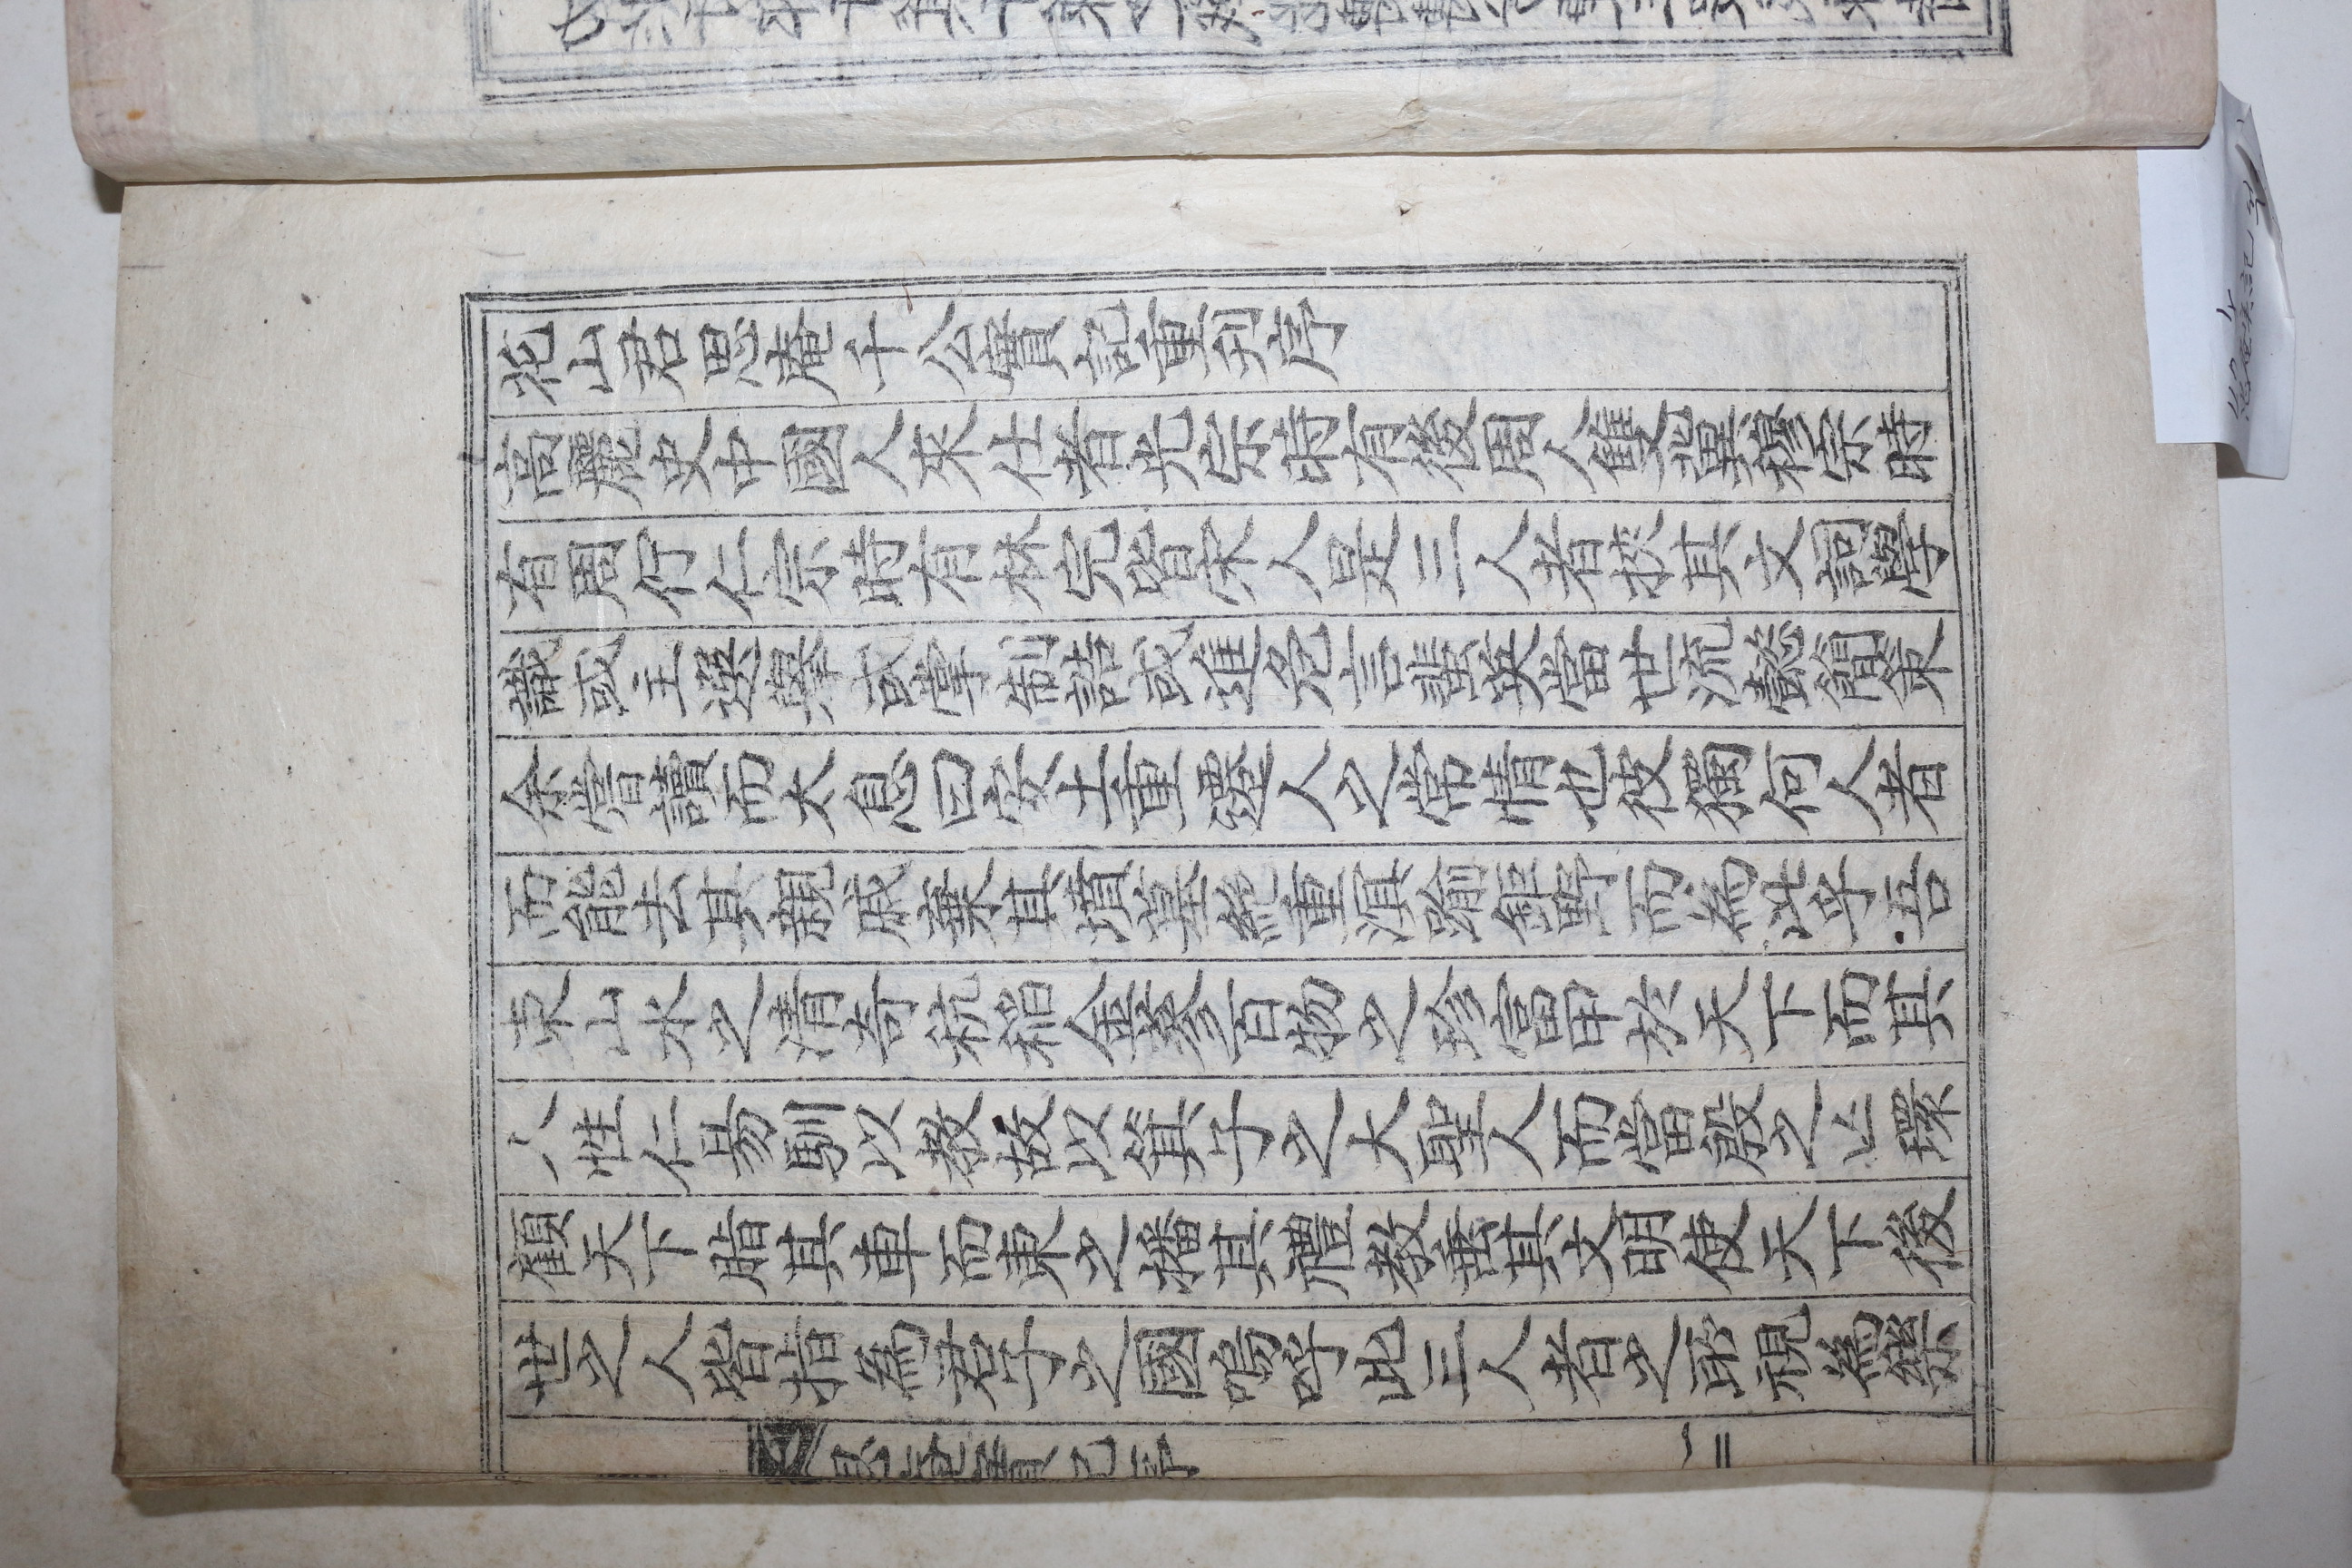 花山君思庵千公實記重刋序
高麗史中國人來仕者光宗時有後周人雙冀穆宗時
有周佇仁宗時有林完皆宋人是三人者挾其文詞學
識或主選擧或掌制誥或進危言蜚英當世流懿簡策
余嘗讀而太息曰安土重遷人之常情也彼獨何人者
而能去其親戚棄其墳墓絶重溟踰鉅野而為此乎吾
東山水之清奇秔稻金蔘百物之珍富甲於天下而其
人性仁易馴以教故以箕子之大聖人而當殷之亾環
顧天下脂其車而東之播其禮教垂其文明使天下後
世之人皆指為君子之國嗚呼此三人者之所視為樂
思庵實記序
一